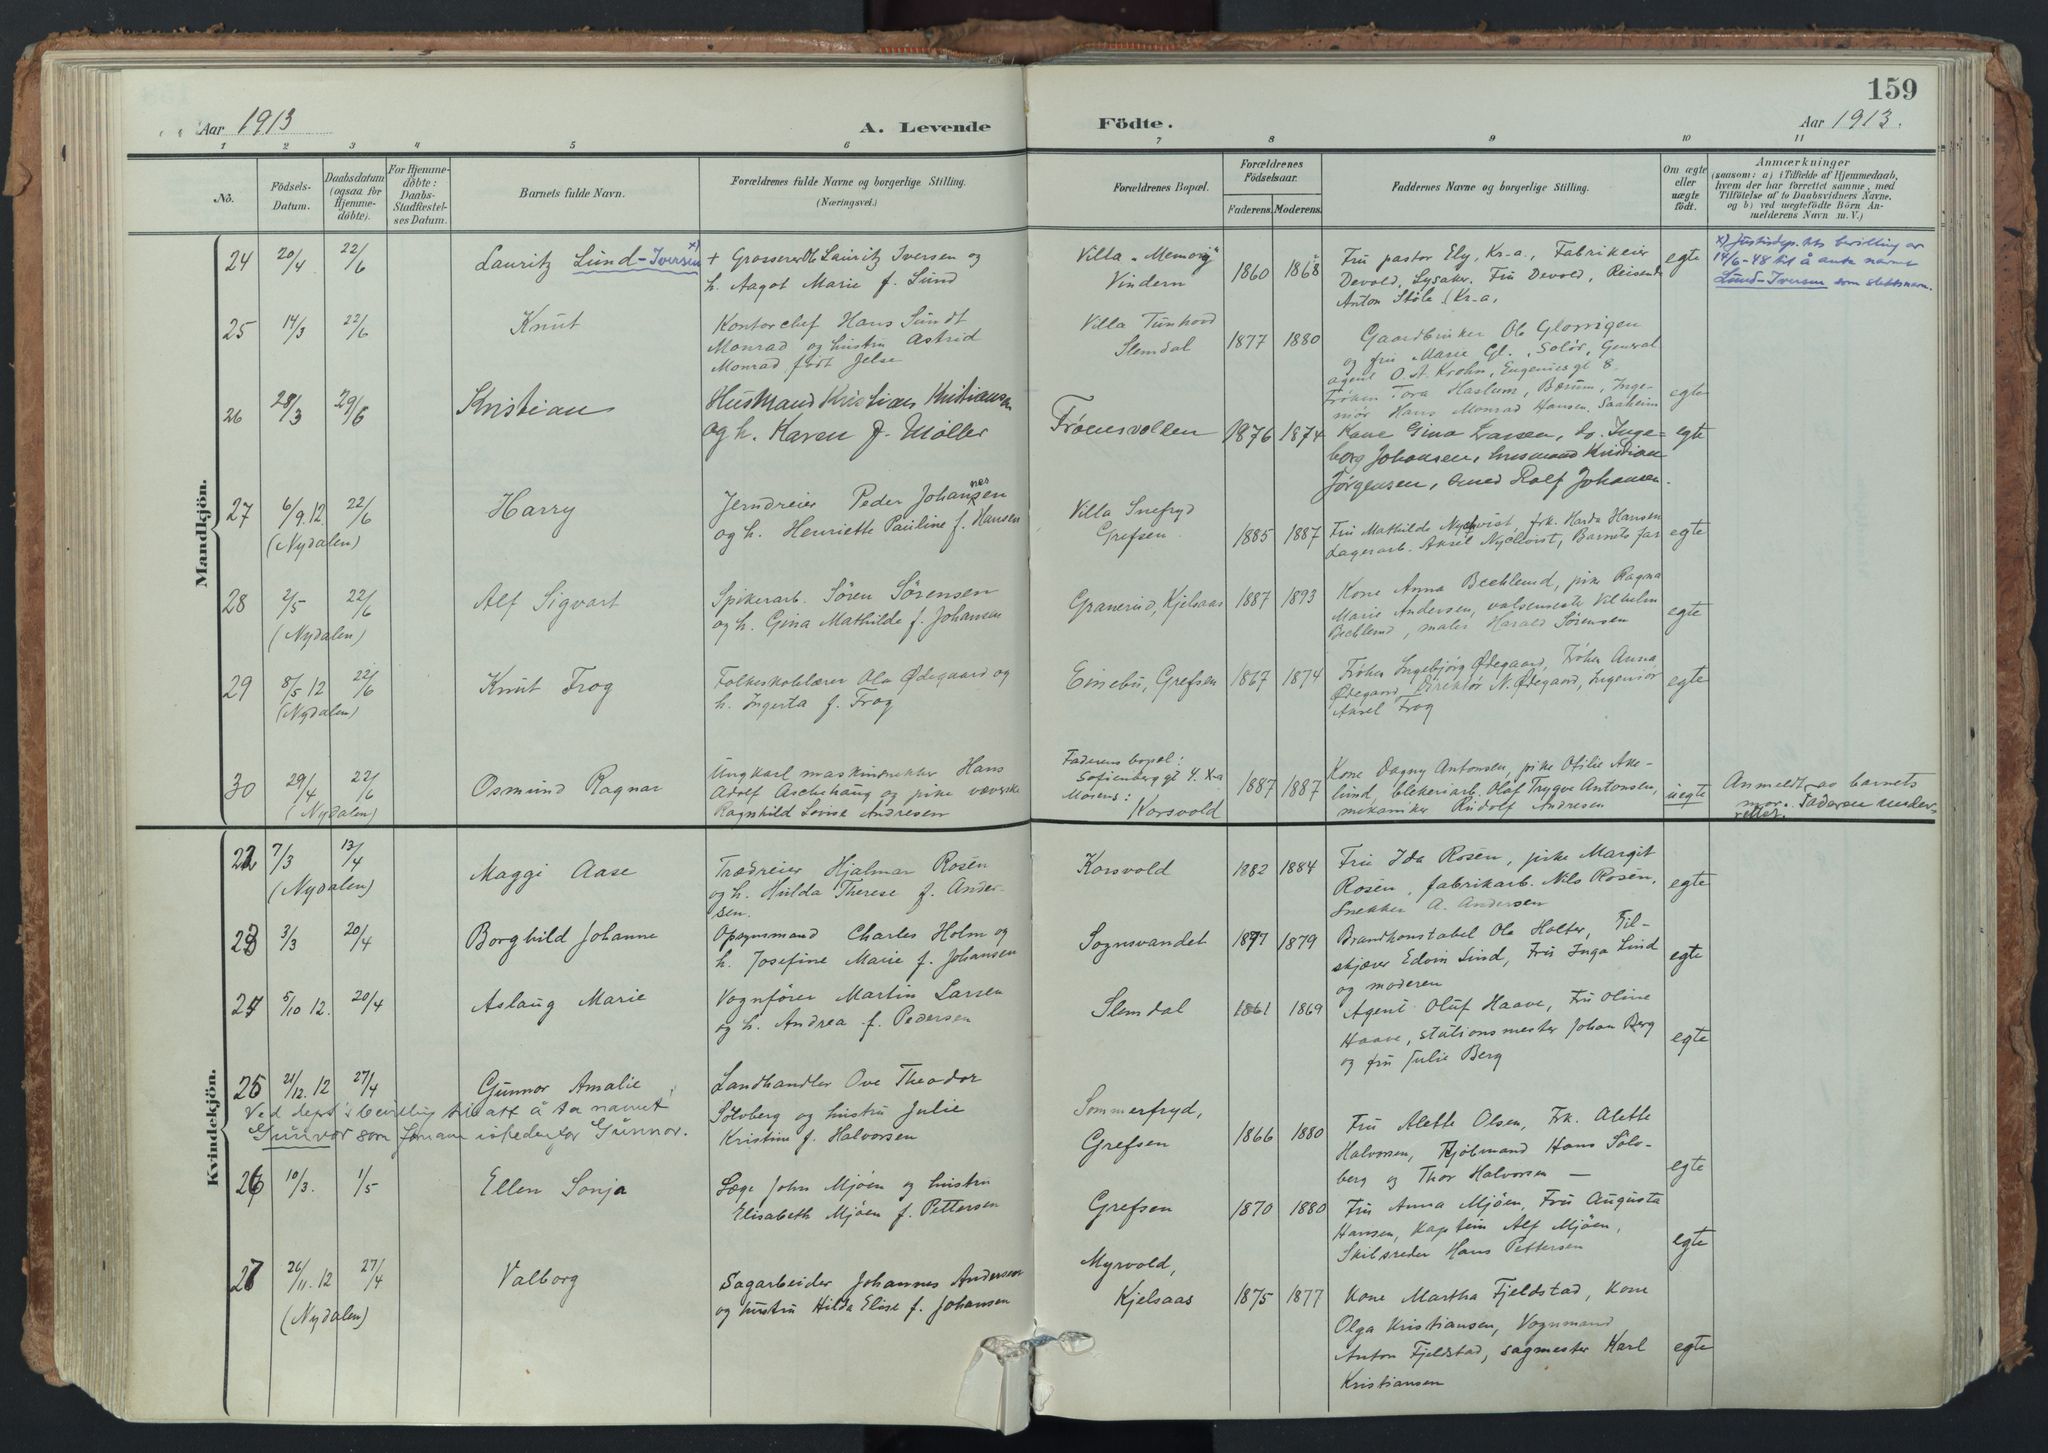 159
Aar 1913
A. Levende
Födte.
Aar 1913.
1 2 3 4 5 6 7 8 9 10 11
No.
Födsels-
Datum.
Daabsdatum
(ogsaa for
Hjemme-
döbte).
For Hjemme-
döbte:
Daabs-
Stadfæstel-
ses Datum.
Barnets fulde Navn.
Forældrenes fulde Navne og borgerlige Stilling.
(Næringsvei.)
Forældrenes Bopæl.
Forældrenes
Födselsaar.
Faderens. Moderens.
Faddernes Navne og borgerlige Stilling.
Om ægte
eller
uægte
födt.
Anmærkninger
(saasom: a) i Tilfælde af Hjemmedaab,
hvem der har forrettet samme, med
Tilföielse af to Daabsvidners Navne,
og b) ved uægtefödte Börn An-
melderens Navn m. V.)
Mandkjön.
24 20/4 22/6 Lauritz Lund-Iversen x)
+ Grosserer Lauritz Iversen og
h. Aagot Marie f. Lund
Villa "Memory"
Vindern
1860 1868
Fru pastor Ely, Kr-a, Fabrikeier
Devold, Lysaker. Fru Devold, Reisende
Anton Støle, Kr-a,
egte
x) Justisdep.tets bevilling av
14/6-48 til å anta navnet
Lund-Iversen som slektsnavn.
25 14/3 22/6 Knut
Kontorchef Hans Sundt
Monrad og hustru Astrid
Monrad født Jelse
Villa Tunhovd
Slemdal
1877 1880
Gaardbruker Ole Glorvigen
og fru Marie Gl., Solør, General
agent O. A. Krohn, Eugeniesgt 8.
Frøken Tora Haslum, Bærum, Inge-
niør Hans Monrad Hansen, Saaheim
egte
26 28/3 29/6 Kristian
Husmand Kristian Kristiansen
og h. Karen f. Møller
Frøensvolden
1876 1874
Kone Gina Larsen, do. Inge-
borg Johansen, husmand Kristian
Jørgensen, Arned Rolf Johansen.
egte
27 6/9.12 22/6 Harry
(Nydalen)
Jerndreier Peder Johannesen
og h. Henriette Pauline f. Hansen
Villa Snefryd
Grefsen
1885 1887
Fru Mathilde Nyqvist, frk. Harda Hansen
Lagerarb. Aksel Nyqvist, Barnets far
egte
28 2/5 22/6 Alf Sigvart
(Nydalen)
Spikerarb. Sören Sörensen
og h. Gina Mathilde f. Johansen
Granerud, Kjelsaas
1887 1893
Kone Anna Becklund, pike Ragna
Marie Andersen, valsemester Vilhelm
Becklund, maler Harald Sørensen
egte
29 8/5 12 22/6 Knut Frog
(Nydalen)
Folkeskolelærer Ola Ødegaard og
h. Ingerta f. Frog
Einebu, Grefsen
1867 1874
Frøken Ingebjørg Ødegaard, Frøken Anna
Ødegaard, Direktør N. Ødegaard, Ingeniør
Aksel Frog
egte
30 29/4 22/6 Osmund Ragnar
(Nydalen)
Ungkarl maskinsnekker Hans
Adolf Aschehaug og pike væverske
Ragnhild Lovise Andresen
Faderens bopæl:
Sofienberggt 4. X-a
Morens:
Korsvold
1887 1887
Kone Dagny Antonsen, pike Otilie Ake-
lund, blekeriarb. Olaf Trygve Antonsen,
mekaniker Rudolf Andresen
uegte
Anmeldt av barnets
mor. Faderen under-
rettet.
Kvindekjön.
22 7/3 13/4 Maggi Aase
(Nydalen)
Trædreier Hjalmar Rosén
og h. Hulda Therese f. Ander-
sen.
Korsvold
1882 1884
Fru Ida Rosén, pike Margit
Rosén, fabrikarb. Nils Rosén,
Snekker A. Andersen
egte
23 3/3 20/4 Borghild Johanne
Opsynsmand Charles Holm og
h. Josefine Marie f. Johansen
Sognsvandet
1877 1879
Brandkonstabel Ole Holter, Til-
skjærer Edvin Lind, Fru Inga Lind
og moderen
egte
24 5/10 12. 20/4 Aslaug Marie
Vognfører Martin Larsen
og h. Andrea f. Pedersen
Slemdal
1861 1869
Agent Oluf Haave, Fru Oline
Haave, stationsmester Johan Berg
og fru Julie Berg
egte
25 21/12.12 27/4 Gunnor Amalie
Ved dept's bevilling til å ta navnet
Gunvor som fornavn istedenfor Gunnor.
Landhandler Ove Theodor
Sölvberg og hustru Julie
Kristine f. Halvorsen
Sommerfryd,
Grefsen
1866 1880
Fru Alette Olsen, Frk. Alette
Halvorsen, Kjøbmand Hans Sölv-
berg og Thor Halvorsen —
egte
26 10/3. 1/5 Ellen Sonja
Læge John Mjöen og hustru
Elisabeth Mjöen f. Pettersen
Grefsen
1870 1880
Fru Anna Mjöen, Fru Augusta
Hansen, Kaptein Alf Mjöen,
Skibsreder Hans Pettersen
egte
27 26/11.12 27/4 Valborg
(Nydalen)
Sagarbeider Johannes Andersen
og hustru Hilda Elise f. Johansen
Myrvold,
Kjelsaas
1875 1877
Kone Martha Fjeldstad, Kone
Olga Kristiansen, Vognmand
Anton Fjeldstad, sagmester Karl
Kristiansen
egte